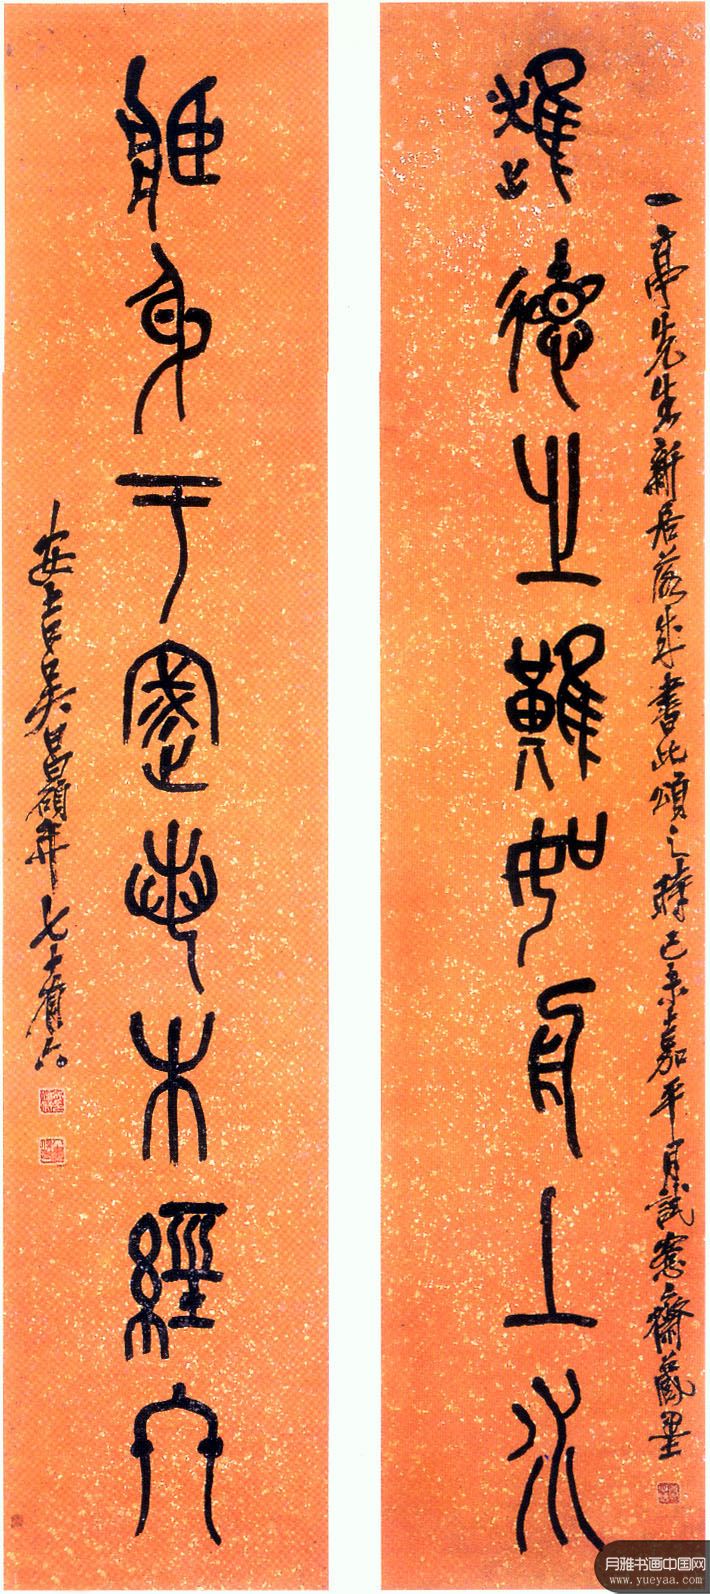 一亭先生新居落成書此頌之時己未嘉平月試愙齋藏墨
進德之難如舟上水
身于若木經冬
安吉吳昌碩年七十有六
月雅书画中国网
www.yueyaa.com